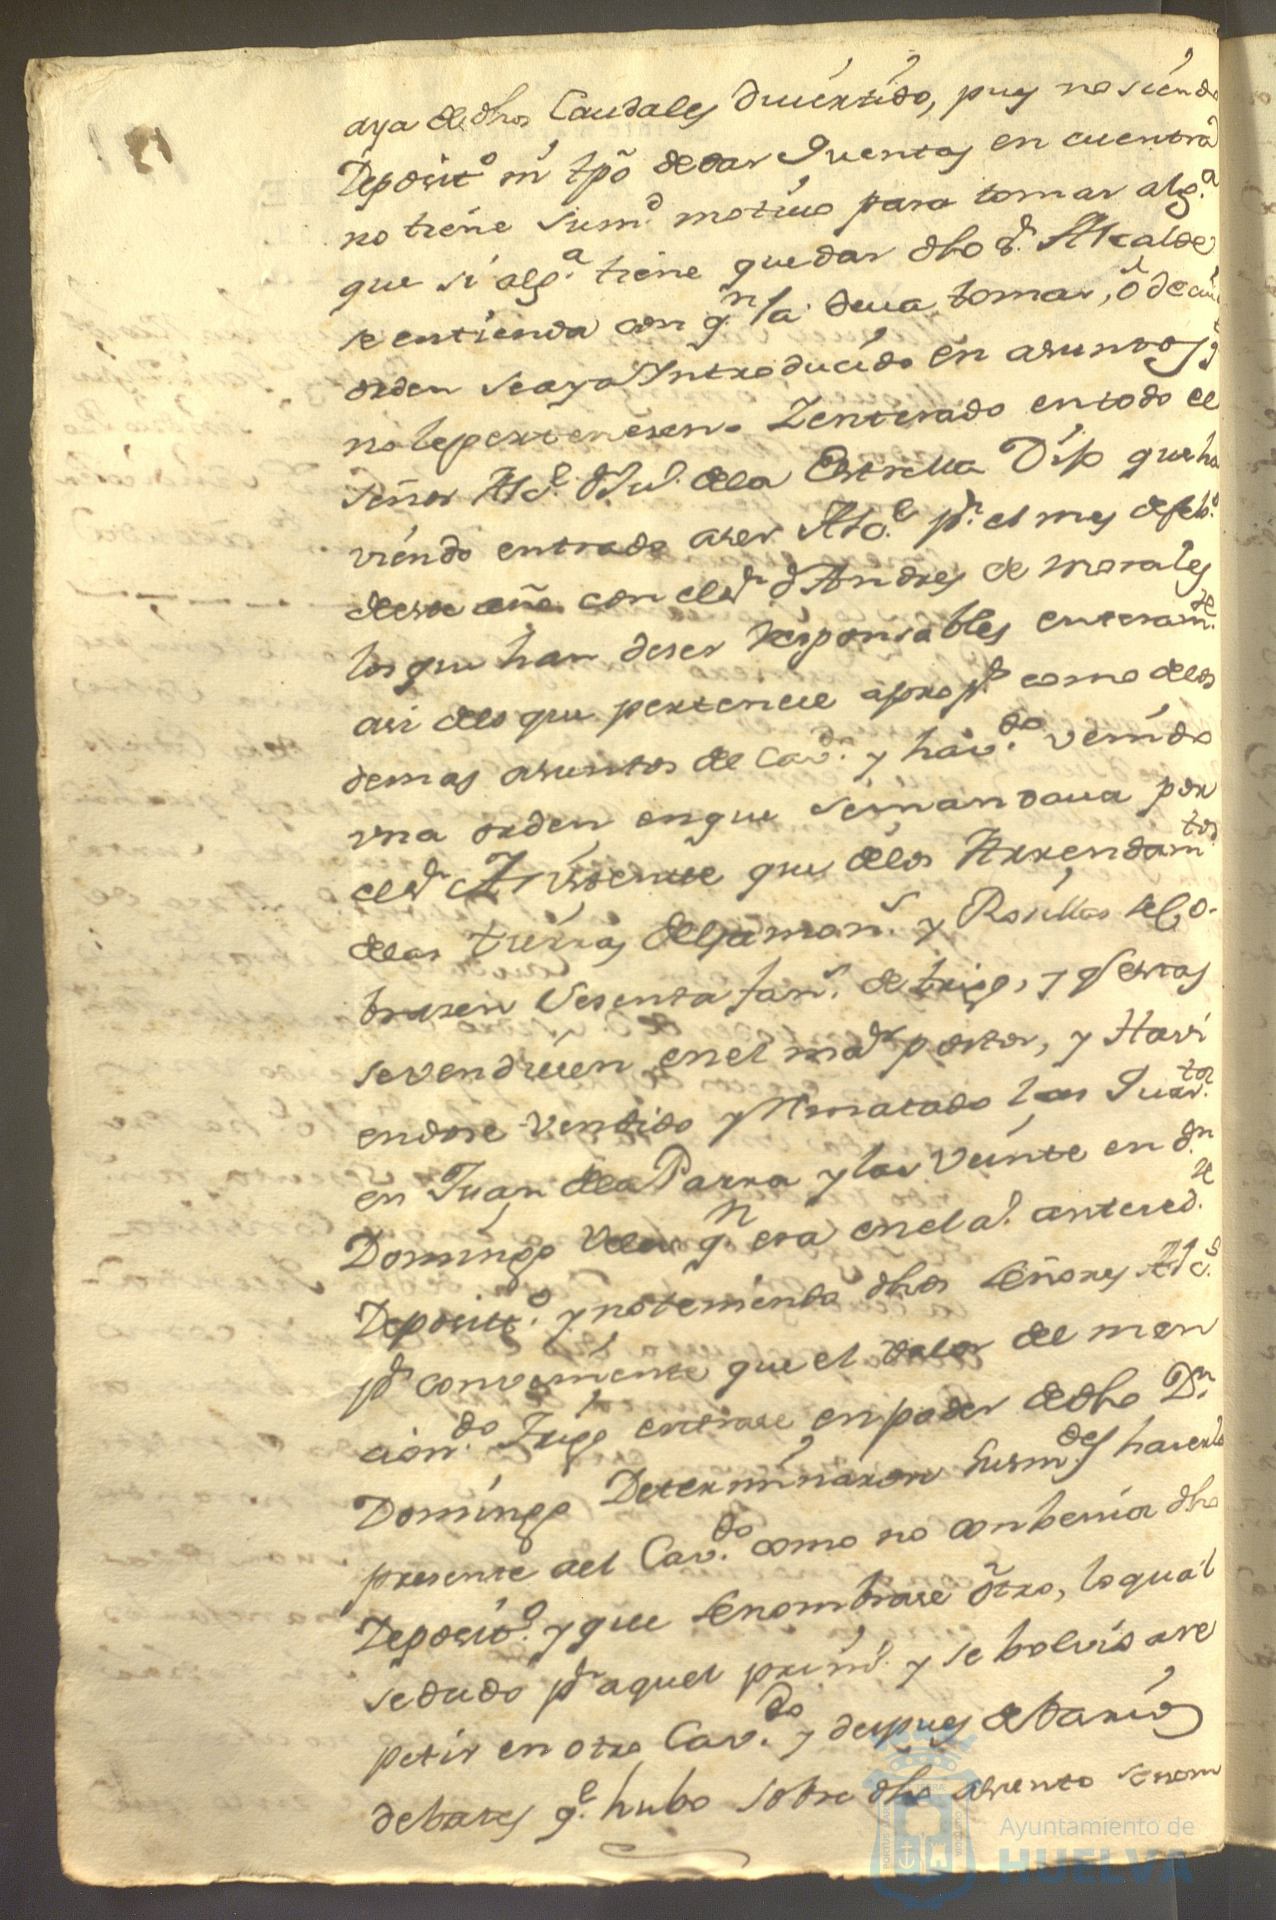 aya de dhos Caudales divertido, pues no siendo
Deposit.º ni tpô de dar Quentas en cuentra
no tiene sum.d motivo para tomar alg.ª
que si alg.ª tiene que dar dho S.r Alcalde
se entienda con q.n la deva tomar, ô de cuia
orden se aya Yntroducido en asuntos q
no le pertenesen. Zenterado en todo el
Señor Alc.e d.n Ju.º de la Estrella Dijo que ha
viendo entrado a ser Alc.e p.r el mes de feb.º
deste año con el s.r d.n Andres de Morales
los que han de ser Responsables enteram.te
asi de lo que pertenece a propº como de los
demas asuntos de Cav.do y hav.do venido
una orden en que se mandava por
el s.r que de los Arrendam.tos
de las tierras del y Rosillas se Co-
brasen Sesenta fan.s de trigo, y q estas
se vendiesen en el maor postor, y Havi
endose vendido y Rmatado las Quar.ta
en Juan de la Parra y las Veinte en d.n
Domingo q.n era en el a.º anteced.te
Deposit.º y no teniendo dhos Señores Alc.s
p.r conveniente que el valor del men
cion.do Trigo entrase en poder de dho D.n
Domingo Determinaron sus m.des hacerlo
presente a el Cav.do como no conbenia dho
Deposit.º y que se nombrase ôtro, lo qual
se dudó p.r aquel prim.º y se bolvió a re
petir en otro Cav.do y despues de barios
debates q.e hubo sobre dho asunto se nom
Ayuntamiento de
HUELVA